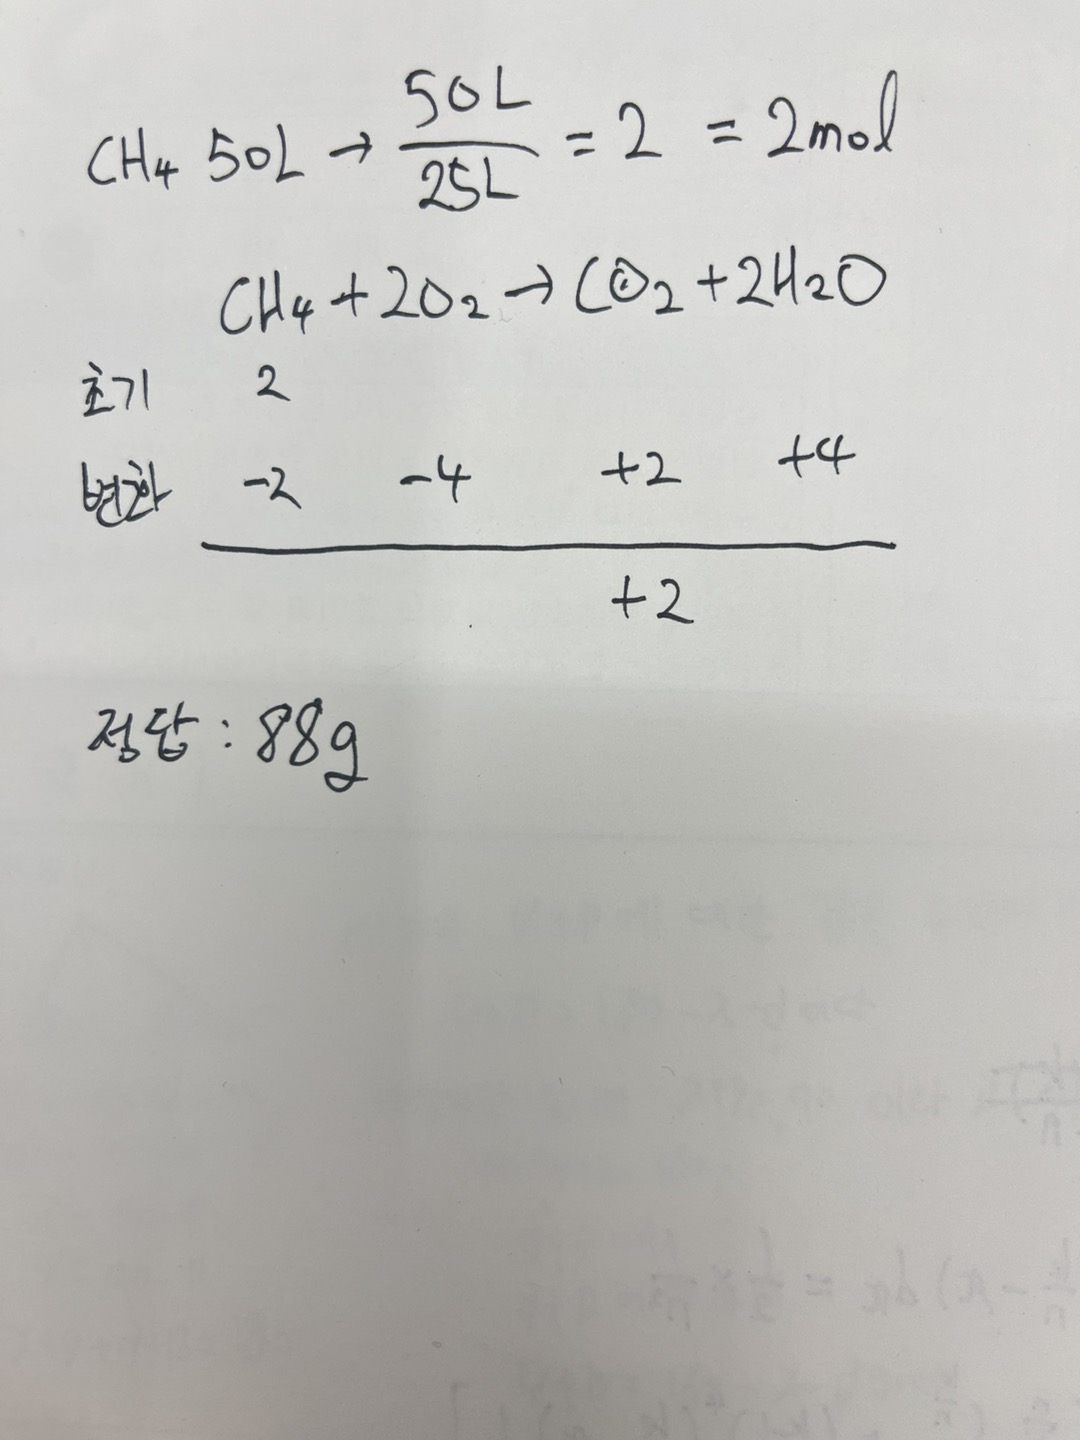 CH4 50L → 50L/25L = 2 = 2mol
CH4 + 2O2 → CO2 + 2H2O
초기 2
변화 -2 -4 +2 +4
+2
정답 : 88g